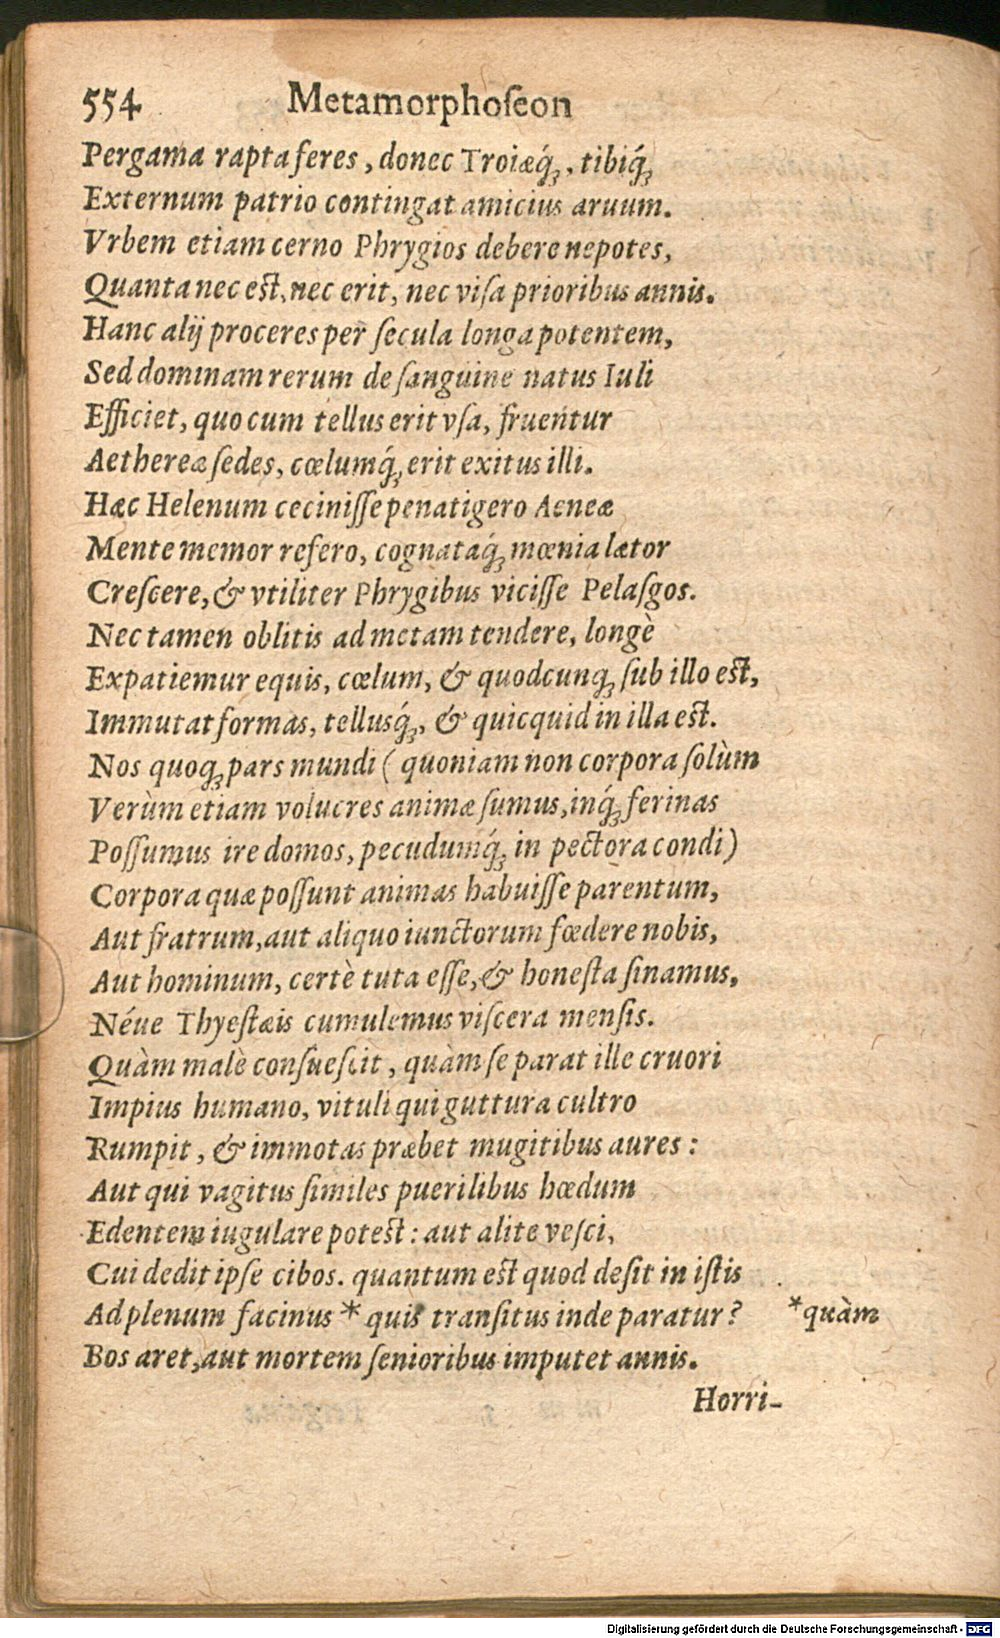 554 Metamorphoſeon
Pergama rapta feres, donec Troiæq́ꝫ, tibiq́ꝫ
Externum patrio contingat amicius aruum.
Vrbem etiam cerno Phrygios debere nepotes,
Quanta nec eſt, nec erit, nec viſa prioribus annis.
Hanc alij proceres per ſecula longa potentem,
Sed dominam rerum de ſanguine natus Iuli
Efficiet, quo cum tellus erit vſa, fruentur
Aethereæ ſedes, cœlumq́ꝫ erit exitus illi.
Hæc Helenum ceciniſſe penatigero Aeneæ
Mente memor refero, cognataq́ꝫ mœnia lætor
Creſcere, & vtiliter Phrygibus viciſſe Pelaſgos.
Nec tamen oblitis ad metam tendere, longè
Expatiemur equis, cœlum, & quodcunqꝫ ſub illo eſt,
Immutat formas, tellusq́ꝫ, & quicquid in illa eſt.
Nos quoqꝫ pars mundi (quoniam non corpora ſolùm
Verùm etiam volucres animæ ſumus, inq́ꝫ ferinas
Poſſumus ire domos, pecudumq́ꝫ in pectora condi)
Corpora quæ poſſunt animas habuiſſe parentum,
Aut fratrum, aut aliquo iunctorum fœdere nobis,
Aut hominum, certè tuta eſſe, & honeſta ſinamus,
Néue Thyeſtæis cumulemus viſcera menſis.
Quàm malè conſueſcit, quàm ſe parat ille cruori
Impius humano, vituli qui guttura cultro
Rumpit, & immotas præbet mugitibus aures:
Aut qui vagitus ſimiles puerilibus hœdum
Edentem iugulare poteſt: aut alite veſci,
Cui dedit ipſe cibos. quantum eſt quod deſit in iſtis
Ad plenum facinus * quis tranſitus inde paratur? *quàm
Bos aret, aut mortem ſenioribus imputet annis.
Horri-
Digitalisierung gefördert durch die Deutsche Forschungsgemeinschaft - DFG